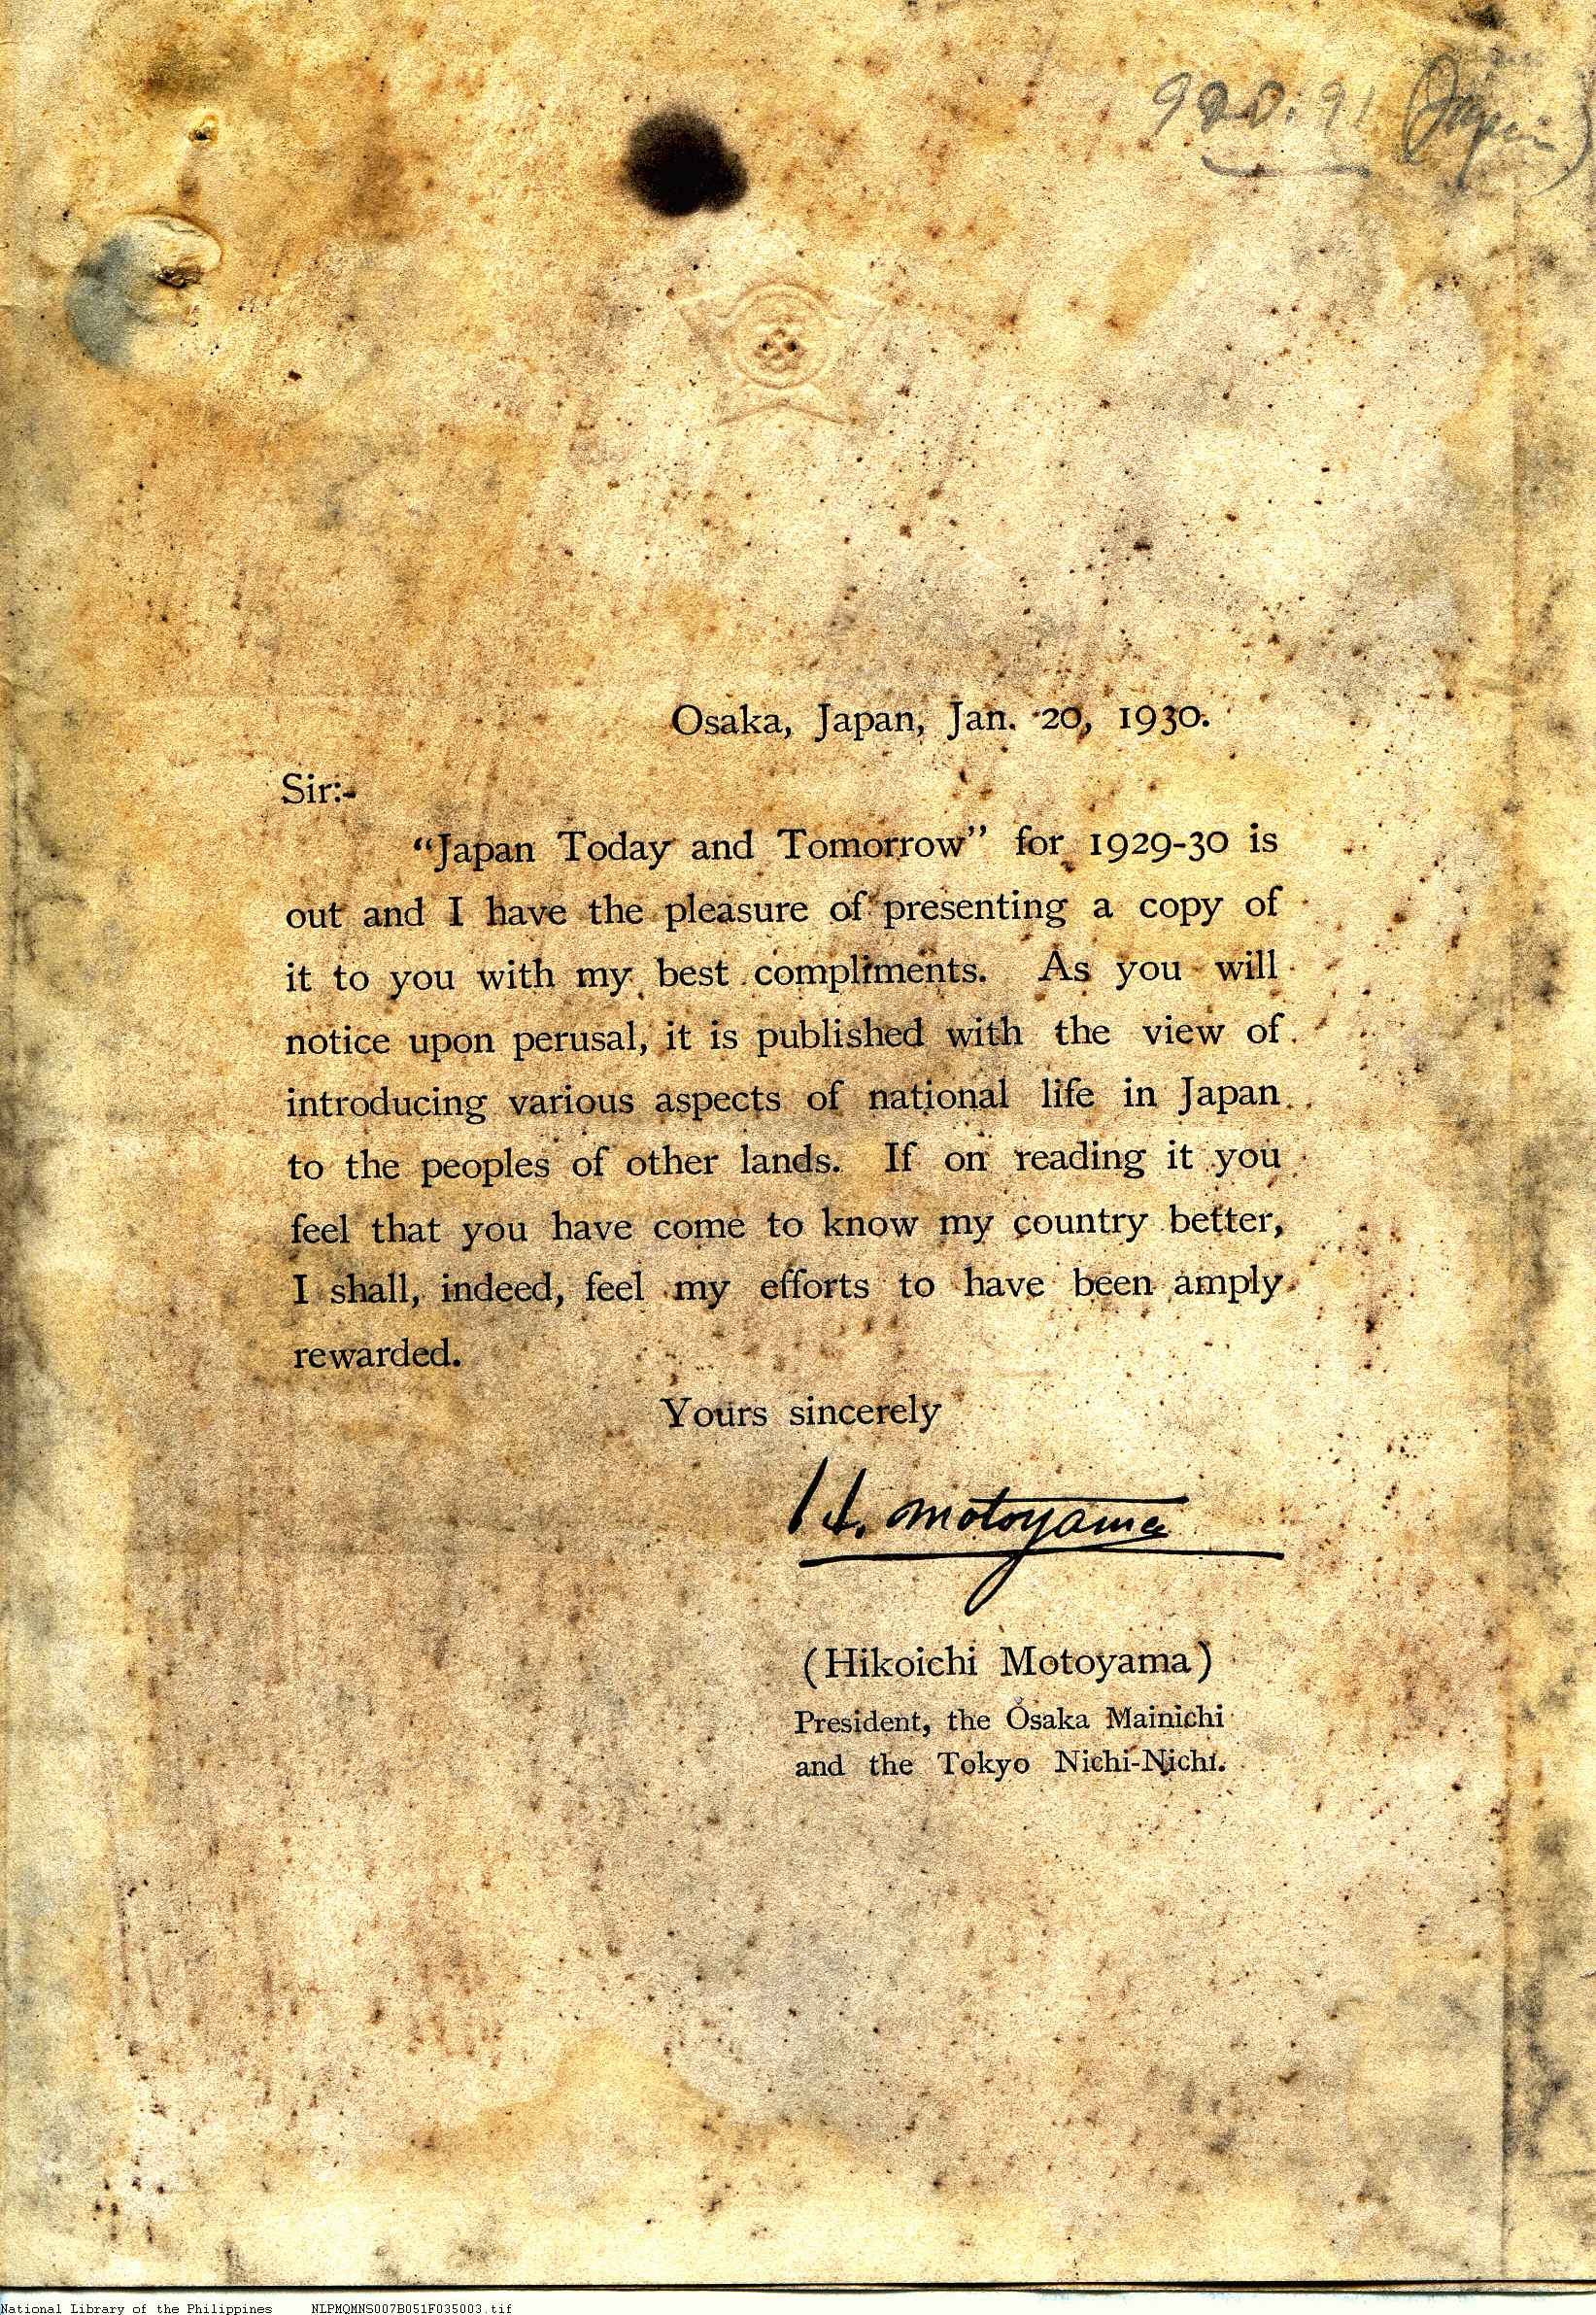 (Japan)
Osaka, Japan, Jan. 20, 1930.
Sir:-
“Japan Today and Tomorrow” for 1929-30 is
out and I have the pleasure of presenting a copy of
it to you with my best compliments. As you will
notice upon perusal, it is published with the view of
introducing various aspects of national life in Japan
to the peoples of other lands. If on reading it you
feel that you have come to know my country better,
I shall, indeed, feel my efforts to have been amply
rewarded.
Yours sincerely
H. Motoyama
(Hikoichi Motoyama)
President, the Osaka Mainichi
and the Tokyo Nichi-Nichi.
National Library of the Philippines NLPMQMNS007B051F035003.tif